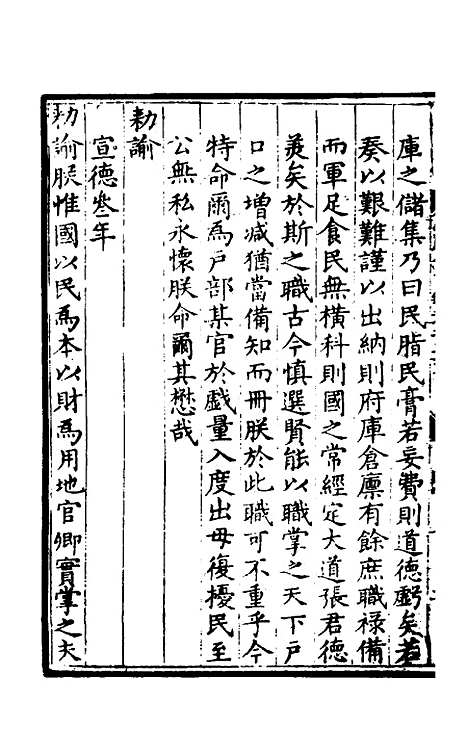 庫之儲集乃曰民脂民膏若妄費則道德虧矣若
奏以艱難謹以出納則府庫倉廩有餘庶職祿備
而軍足食民無橫科則國之常經定大道張君德
美矣於斯之職古今慎選賢能以職掌之天下戶
口之增減猶當備知而冊朕於此職可不重乎今
特命爾爲戶部某官於戲量入度出毋復擾民至
公無私永懷朕命爾其懋哉
勑諭
宣德叄年
勑諭朕惟國以民爲本以財爲用地官卿實掌之夫